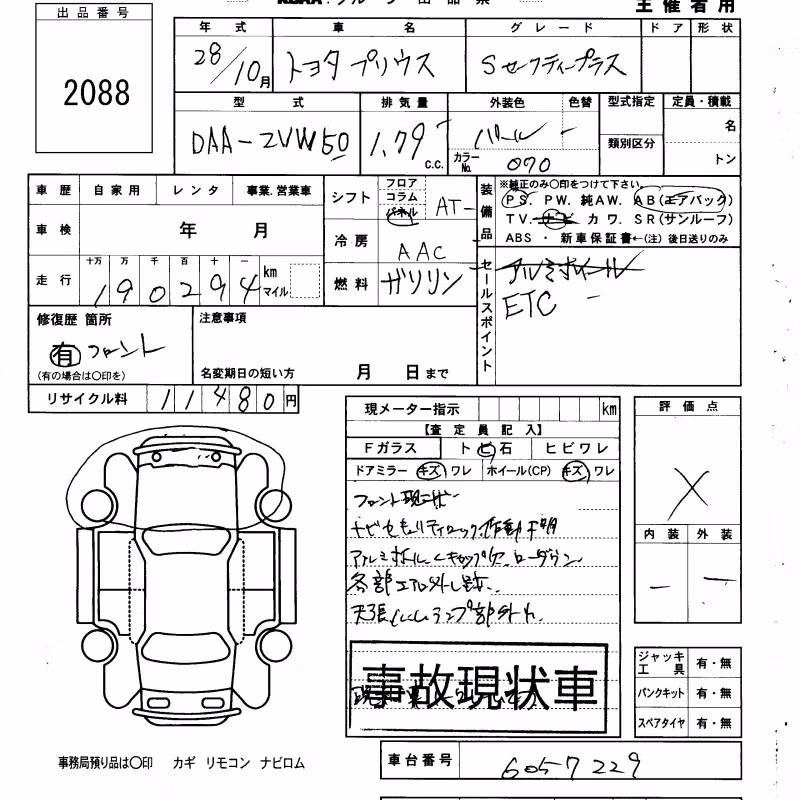 主催者用
出品番号
2088
年式 車名 グレード ドア 形状
28/10月 トヨタ プリウス Sセーフティープラス
型式 排気量 外装色 色替 型式指定 定員・積載
DAA-ZVW50 1.79 c.c. パール - 類別区分 名
カラーNo. 070 トン
車歴 自家用 レンタ 事業.営業車
シフト フロア コラム パネル AT
装備品 ※純正のみ〇印をつけて下さい。
PS. PW. 純AW. AB(エアバック)
TV. ナビ カワ. SR(サンルーフ)
ABS ・ 新車保証書←(注) 後日送りのみ
車検 年 月
冷房 AAC
走行 十万 万 千 百 十 一
190294 km マイル
燃料 ガソリン
セールスポイント アルミホイール
ETC
修復歴 箇所
有 フロント
(有の場合は〇印を)
注意事項
名変期日の短い方 月 日まで
リサイクル料 11480円
現メーター指示 km
【査定員記入】
Fガラス トビ石 ヒビワレ
ドアミラー キズ ワレ ホイール(CP) キズ ワレ
フロント現
ナビセキュリティロック.作動不明
アルミホイル キャップ欠 ローダウン
各部エアロ外し跡.
天張 ランプ部外れ
事故現状車
評価点
X
内装 外装
- -
ジャッキ工具 有・無
パンクキット 有・無
スペアタイヤ 有・無
事務局預り品は〇印 カギ リモコン ナビロム
車台番号 6057229